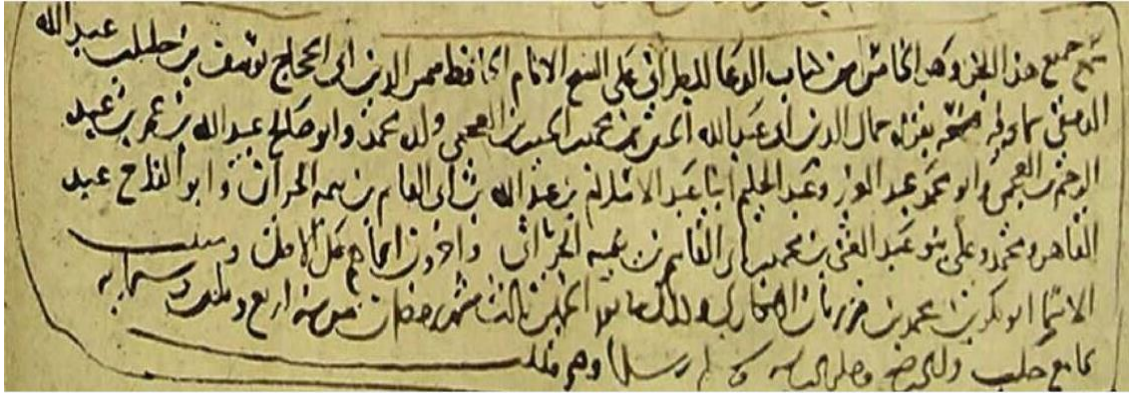 سمع جميع هذا الجزو وهو الخامس من كتاب الدعا للطبراني على الشيخ الامام الحافظ شمس الدين ابي الحجاج يوسف بن خليل بن عبد الله
الدمشقي سماعه فيه بقراه جمال الدين ابي عبد الله الحسين بن الحسين العجمي ولده محمد وابو صالح عبد الله بن عمر بن عبد
الرحيم بن العجمي وابو محمد عبد العزيز وعبد الحليم ابنا عبد السلام بن عبد الله بن ابي القاسم بن تيميه الحرانيان وابو الفرج عبد
القاهر ومحمد وعلي بنو عبد الغني بن محمد بن ابي القاسم بن تيميه الحراني واخرون اسماهم على الاصل ومثبت
الاسما ابو بكر بن محمد بن وذلك يوم الخميس ثالث شهر رمضان من سنه اربع وثلاثين وستمايه
بجامع حلب وصلى الله على وسلم